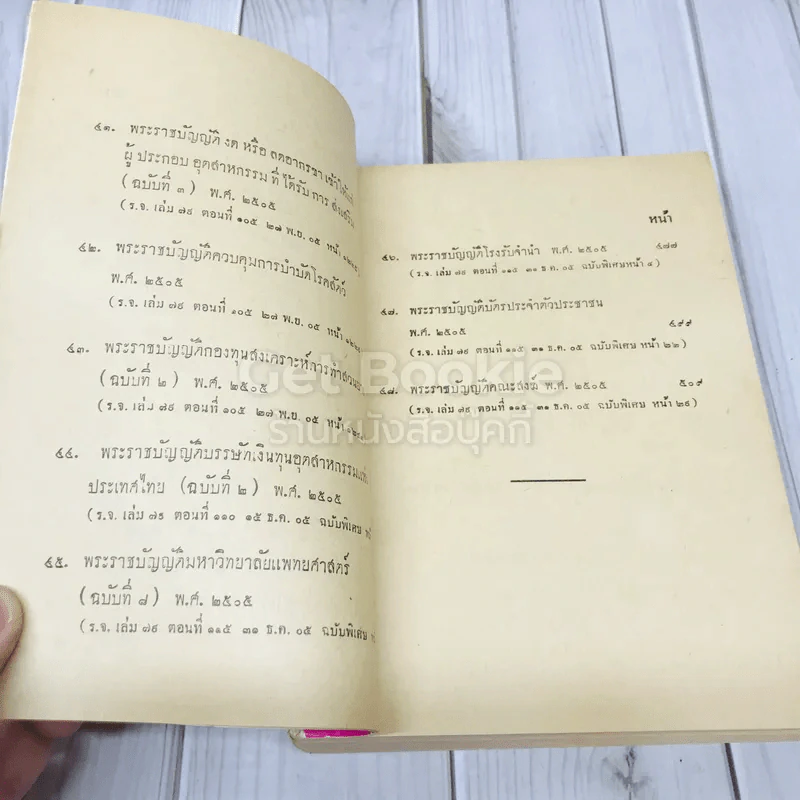 ๔๑. พระราชบัญญัติ งด หรือ ลดอากรขาเข้าให้แก่
ผู้ ประกอบ อุตสาหกรรม ที่ ได้รับ การ ส่งเสริม
(ฉบับที่ ๓) พ.ศ. ๒๕๐๕
(ร.จ. เล่ม ๗๙ ตอนที่ ๑๐๕ ๒๗ พ.ย. ๐๕ หน้า
๔๒. พระราชบัญญัติควบคุมการบำบัดโรคสัตว์
พ.ศ. ๒๕๐๕
(ร.จ. เล่ม ๗๙ ตอนที่ ๑๐๕ ๒๗ พ.ย. ๐๕ หน้า
๔๓. พระราชบัญญัติกองทุนสงเคราะห์การทำสวน
(ฉบับที่ ๒) พ.ศ. ๒๕๐๕
(ร.จ. เล่ม ๗๙ ตอนที่ ๑๐๕ ๒๗ พ.ย. ๐๕ หน้า
๔๔. พระราชบัญญัติบรรษัทเงินทุนอุตสาหกรรมแห่ง
ประเทศไทย (ฉบับที่ ๒) พ.ศ. ๒๕๐๕
(ร.จ. เล่ม ๗๙ ตอนที่ ๑๑๐ ๑๕ ธ.ค. ๐๕ ฉบับพิเศษ
๔๕. พระราชบัญญัติมหาวิทยาลัยแพทยศาสตร์
(ฉบับที่ ๘) พ.ศ. ๒๕๐๕
(ร.จ. เล่ม ๗๙ ตอนที่ ๑๑๕ ๓๑ ธ.ค. ๐๕ ฉบับพิเศษ
หน้า
๔๖. พระราชบัญญัติโรงรับจำนำ พ.ศ. ๒๕๐๕ ๔๗๗
(ร.จ. เล่ม ๗๙ ตอนที่ ๑๑๕ ๓๑ ธ.ค. ๐๕ ฉบับพิเศษหน้า ๔)
๔๗. พระราชบัญญัติบัตรประจำตัวประชาชน
พ.ศ. ๒๕๐๕ ๔๙๙
(ร.จ. เล่ม ๗๙ ตอนที่ ๑๑๕ ๓๑ ธ.ค. ๐๕ ฉบับพิเศษ หน้า ๒๒)
๔๘. พระราชบัญญัติคณะสงฆ์ พ.ศ. ๒๕๐๕ ๕๐๙
(ร.จ. เล่ม ๗๙ ตอนที่ ๑๑๕ ๓๑ ธ.ค. ๐๕ ฉบับพิเศษ หน้า ๒๙)
Get Bookie
ร้านหนังสือบุคกี้